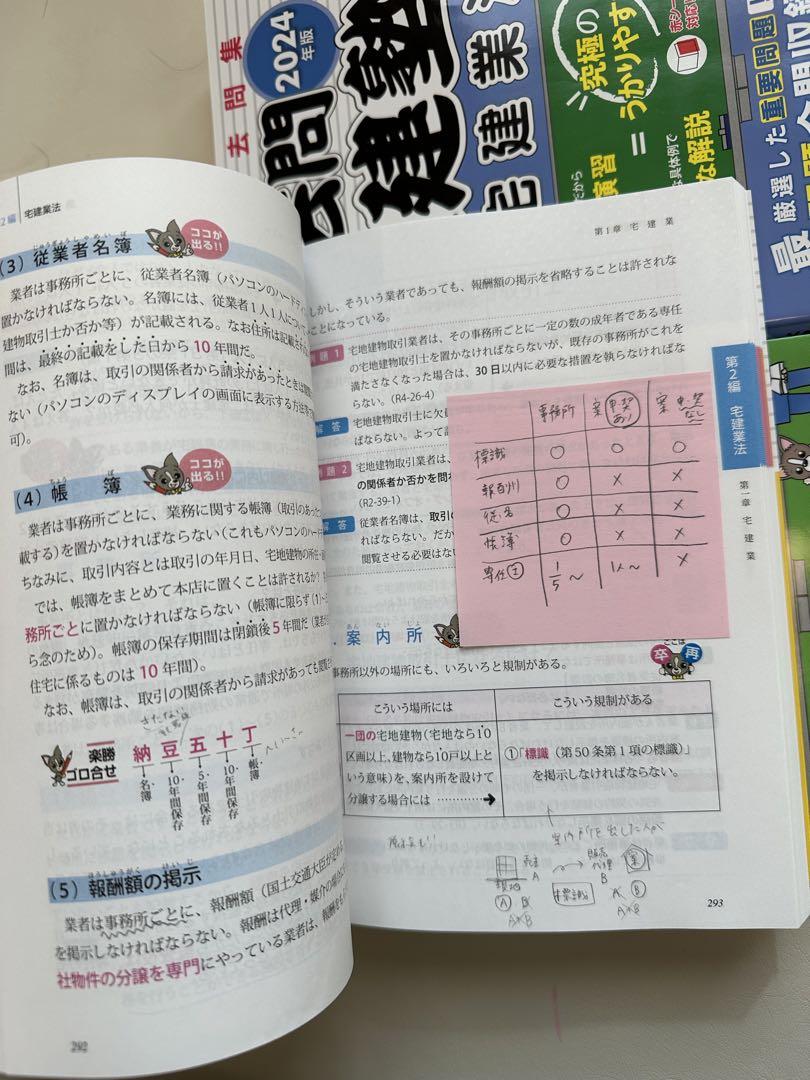 去問集
2024
年版
建塾
宅建業
究極の
うかりやす
演習
な解説
厳選した重要問題
2編 宅建業法
(3) 従業者名簿
じゅうぎょうしゃめいぼ
ココが
出る!!
業者は事務所ごとに、従業者名簿(パソコンのハードディ
置かなければならない。名簿には、従業者1人1人につい
建物取引士か否か等)が記載される。なお住所は記載され
間は、最終の記載をした日から10年間だ。
なお、名簿は、取引の関係者から請求があったときは
ない(パソコンのディスプレイの画面に表示する方法で
可)。
(4) 帳簿
ちょう ぼ
ココが
出る!!
業者は事務所ごとに、業務に関する帳簿(取引のあった
載する)を置かなければならない(これもパソコンのハード
ちなみに、取引内容とは取引の年月日、宅地建物の所在
では、帳簿をまとめて本店に置くことは許されるか?
務所ごとに置かなければならない(帳簿に限らず(1)~
ら念のため)。帳簿の保存期間は閉鎖後5年間だ(業者が
住宅に係るものは10年間)。
なお、帳簿は、取引の関係者から請求があっても閲覧
楽勝
ゴロ合せ
納豆五十丁
名簿
10年間保存
5年間保存
10年間保存
帳簿
(5) 報酬額の掲示
ほうしゅうがく けいじ
業者は事務所ごとに、報酬額(国土交通大臣が定める
を掲示しなければならない。報酬は代理・媒介の場合に
社物件の分譲を専門にやっている業者は、報酬を
292
第1章 宅建業
しかし、そういう業者であっても、報酬額の掲示を省略することは許されな
いことになっている。
例題1 宅地建物取引業者は、その事務所ごとに一定の数の成年者である専任
の宅地建物取引士を置かなければならないが、既存の事務所がこれを
満たさなくなった場合は、30日以内に必要な措置を執らなければな
らない。(R4-26-4)
解答 宅地建物取引士に欠
ばならない。よって
例題2 宅地建物取引業者は、
の関係者か否かを問わ
(R2-39-1)
解答 従業者名簿は、取引の
ればならない。だか
閲覧させる必要はない
事務所 案 申・契あり 案 申・契なし
標識 ○ ○ ○
報酬 ○ × ×
従名 ○ × ×
帳簿 ○ × ×
専任士 1/5~ 1人~ ×
案内所
あん ない じょ
ここは
卒 再
事務所以外の場所にも、いろいろと規制がある。
こういう場所には こういう規制がある
一団の宅地建物(宅地なら10
区画以上、建物なら10戸以上と
いう意味)を、案内所を設けて
分譲する場合には…………➔
①「標識(第50条第1項の標識)」
を掲示しなければならない。
案内所を出した人が
売主
A
販売
代理
B
案
現地
標識
293
第2編 宅建業法
第一章 宅建業